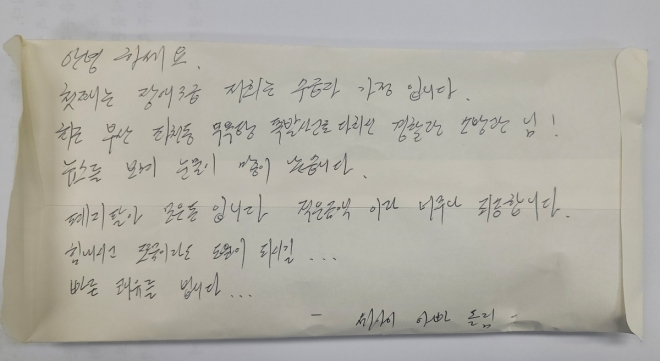 안녕 하세요.
첫째는 장애3급 저희는 수급자 가정 입니다.
최근 부산 목욕탕 폭발사고로 다치신 경찰관 소방관 님!
뉴스를 보며 눈물이 많이 났습니다.
폐지팔아 모은돈 입니다 적은금액 이라 너무나 죄송합니다.
힘내시고 조금이라도 도움이 되시길 ...
빠른 쾌유를 빕니다...
- 아빠 드림 -